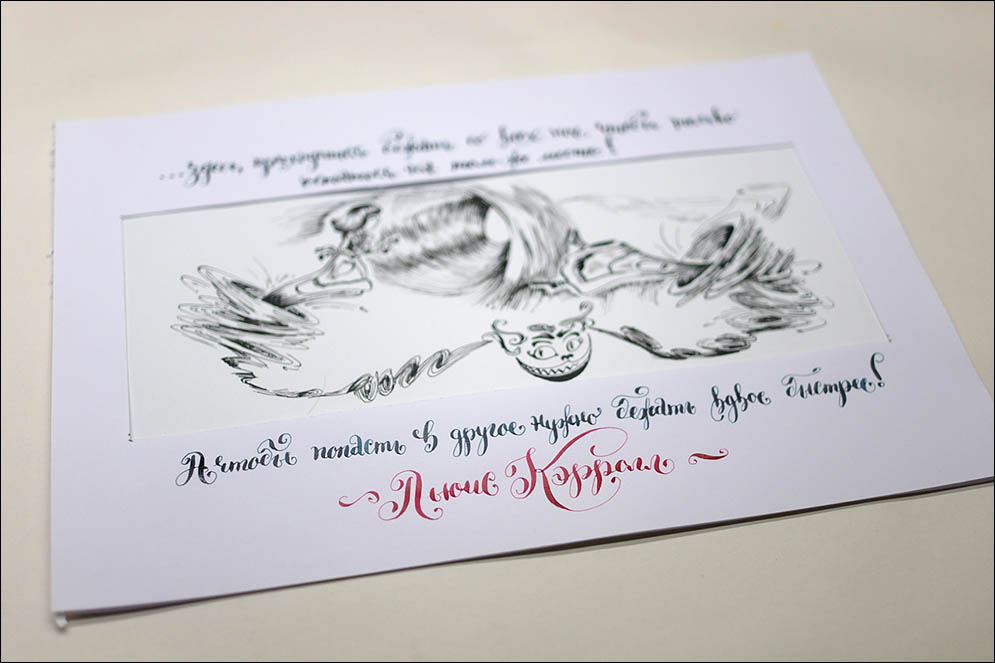 ...здесь, приходится бежать со всех ног, чтобы только
остаться на том же месте!
А чтобы попасть в другое нужно бежать вдвое быстрее!
Льюис Кэрролл